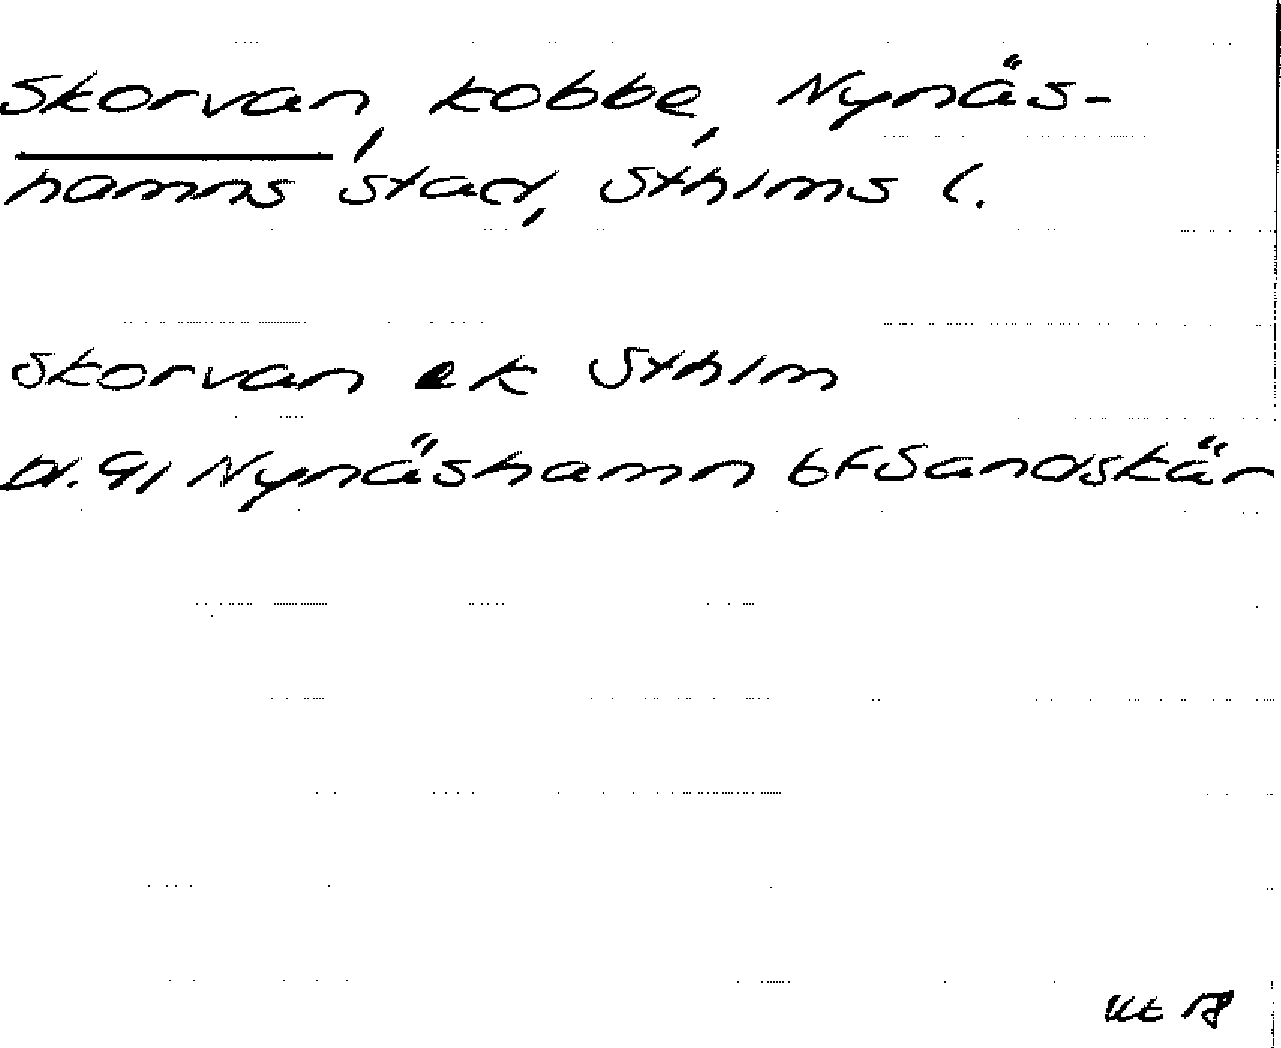 Skorvan, kobbe, Nynäs-
hamns stad, Sthlms l.
Skorvan ek Sthlm
bl. 91 Nynäshamn bf Sandskär